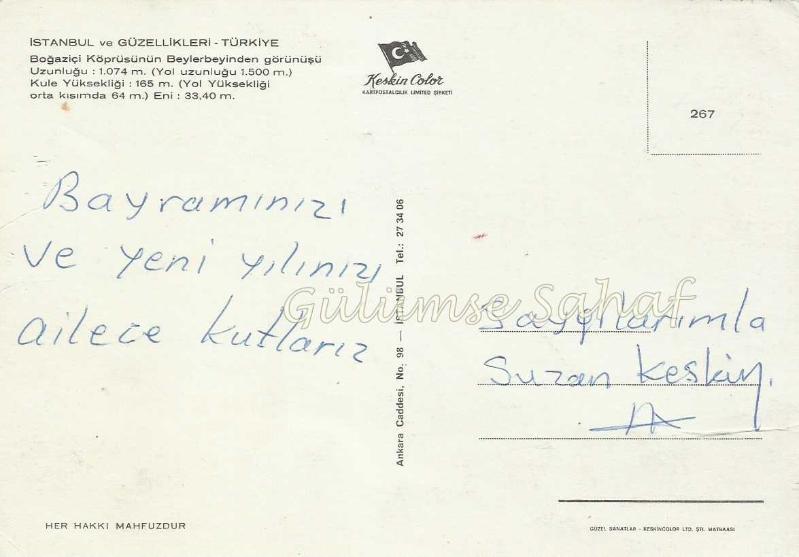 İSTANBUL ve GÜZELLİKLERİ - TÜRKİYE
Boğaziçi Köprüsünün Beylerbeyinden görünüşü
Uzunluğu : 1.074 m. (Yol uzunluğu 1.500 m.)
Kule Yüksekliği : 165 m. (Yol Yüksekliği
orta kısımda 64 m.) Eni : 33,40 m.
Keskin Color
KARTPOSTALCILIK LİMİTED ŞİRKETİ
267
Bayramınızı
ve yeni yılınızı
ailece kutlarız
Ankara Caddesi, No. 98 — İSTANBUL Tel.: 27 34 06
Gülümse Sahaf
Saygılarımla
Suzan Keskin.
HER HAKKI MAHFUZDUR
GÜZEL SANATLAR - KESKİNCOLOR LTD. ŞTİ. MATBAASI